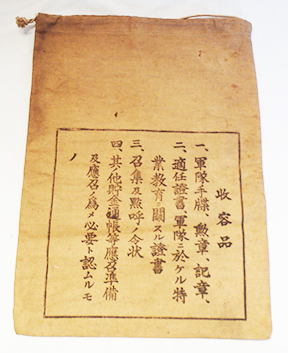 收容品
一、軍隊手牒、勲章、記章、
二、適任證書、軍隊ニ於ケル特
業教育ニ關スル證書
三、召集及點呼ノ令状
四、其他貯金通帳等應召準備
及應召ノ爲メ必要ト認ムルモ
ノ